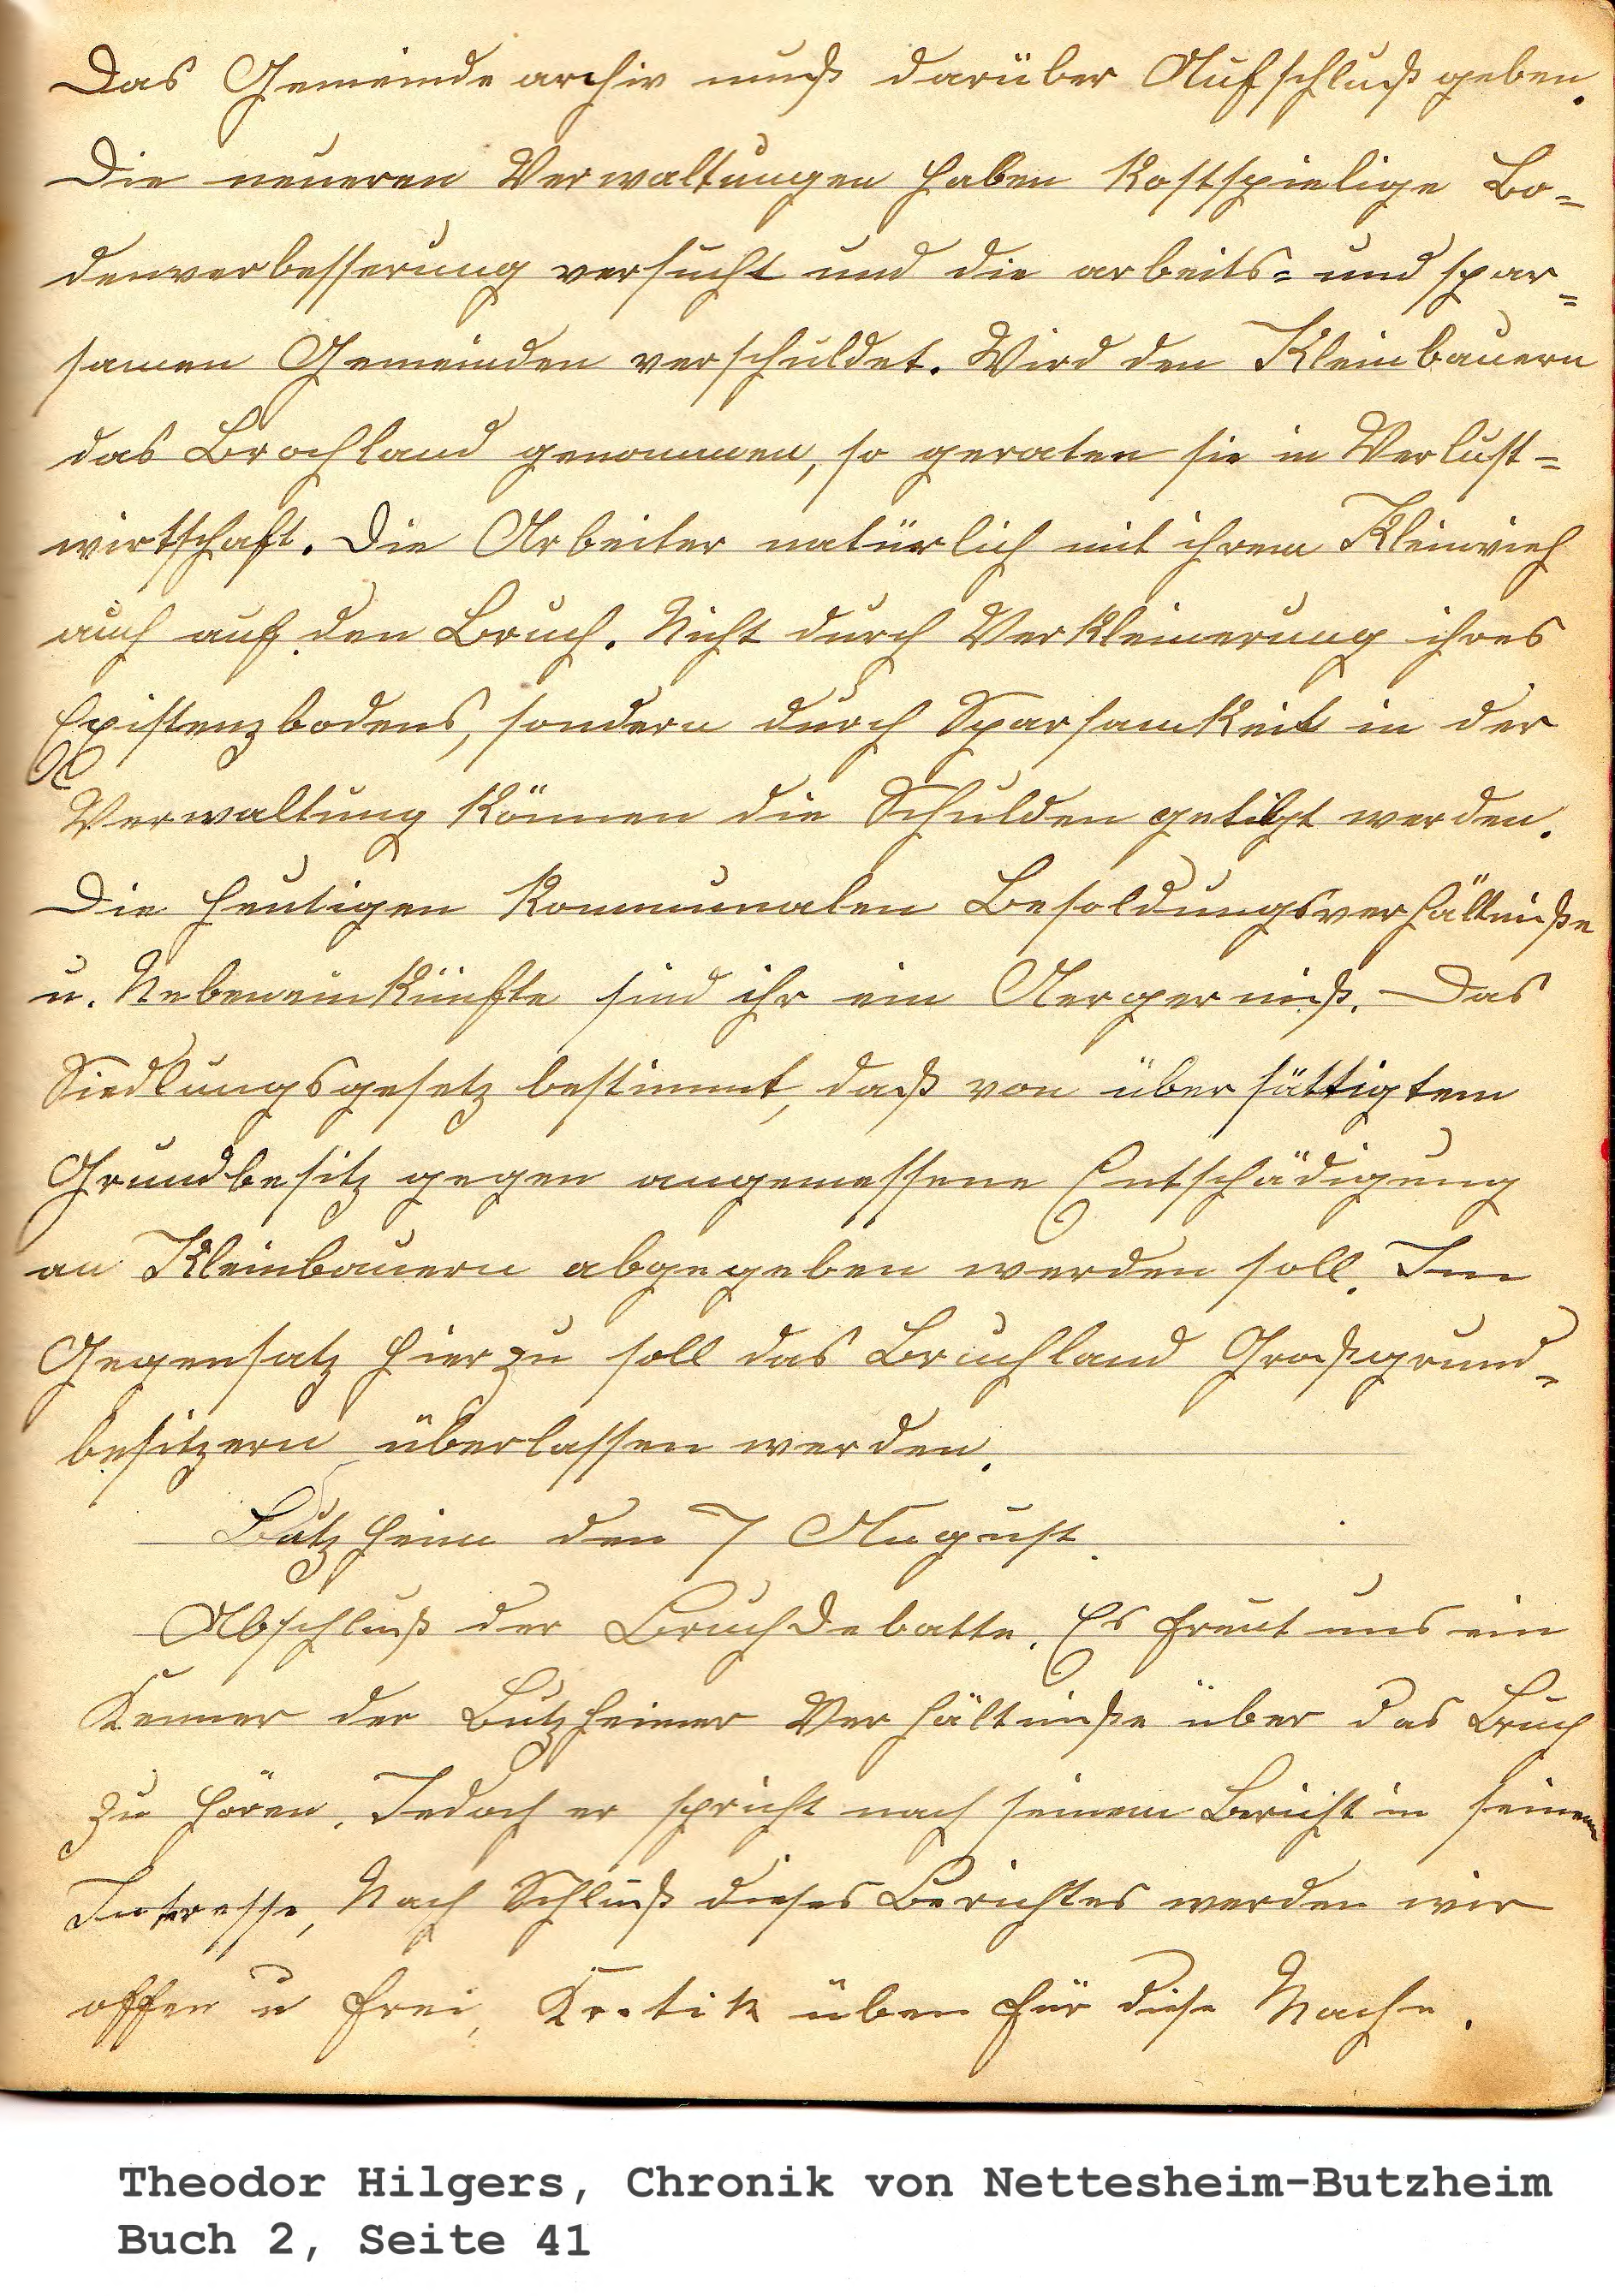 Das Gemeindearchiv muß darüber Aufschluß geben.
Die neueren Verwaltungen haben kostspielige Bo=
denverbesserung versucht und die arbeits= und spar=
samen Gemeinden verschuldet. Wird den Kleinbauern
das Brochland genommen, so geraten sie in Verlust=
wirtschaft. Die Arbeiter natürlich mit ihrem Kleinvieh
auch auf den Bruch. Nicht durch Verkleinerung ihres
Existenzbodens, sondern durch Sparsamkeit in der
Verwaltung können die Schulden getilgt werden.
Die heutigen kommunalen Besoldungsverhältniße
u. Nebeneinkünfte sind ihr ein Aergerniß. Das
Siedlungsgesetz bestimmt, daß von übersättigtem
Grundbesitz gegen angemessene Entschädigung
an Kleinbauern abgegeben werden soll. Im
Gegensatz hierzu soll das Bruchland Großgrund=
besitzern überlassen werden.
Butzheim den 7 August.
Abschluß der Bruchdebatte. Es freut uns ein
Kenner der Butzheimer Verhältniße über das Bruch
zu hören. Jedoch er spricht nach seinem Bericht in seinem
Interesse, Nach Schluß dieses Berichtes werden wir
offen u frei, Kritik üben für diese Mache.
Theodor Hilgers, Chronik von Nettesheim-Butzheim
Buch 2, Seite 41